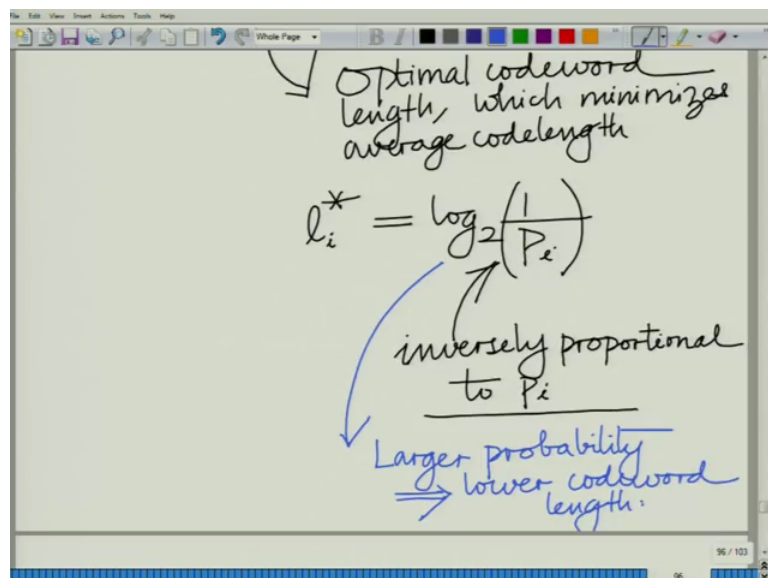 File Edit View Insert Actions Tools Help
Whole Page
B I
Optimal codeword
length, which minimizes
average codelength
l_i^* = log_2 (1/P_i)
inversely proportional
to P_i
Larger probability
⇒ lower codeword
length.
96 / 103
96